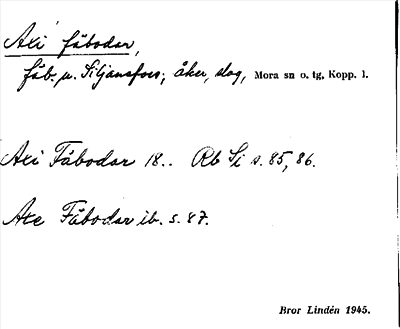 Axi fäbodar,
fäb. u. Siljansfors; åker, slog, Mora sn o. tg, Kopp. l.
Axi Fäbodar 18.. Rb Si s. 85, 86.
Axe Fäbodar ib. s. 87.
Bror Lindén 1945.